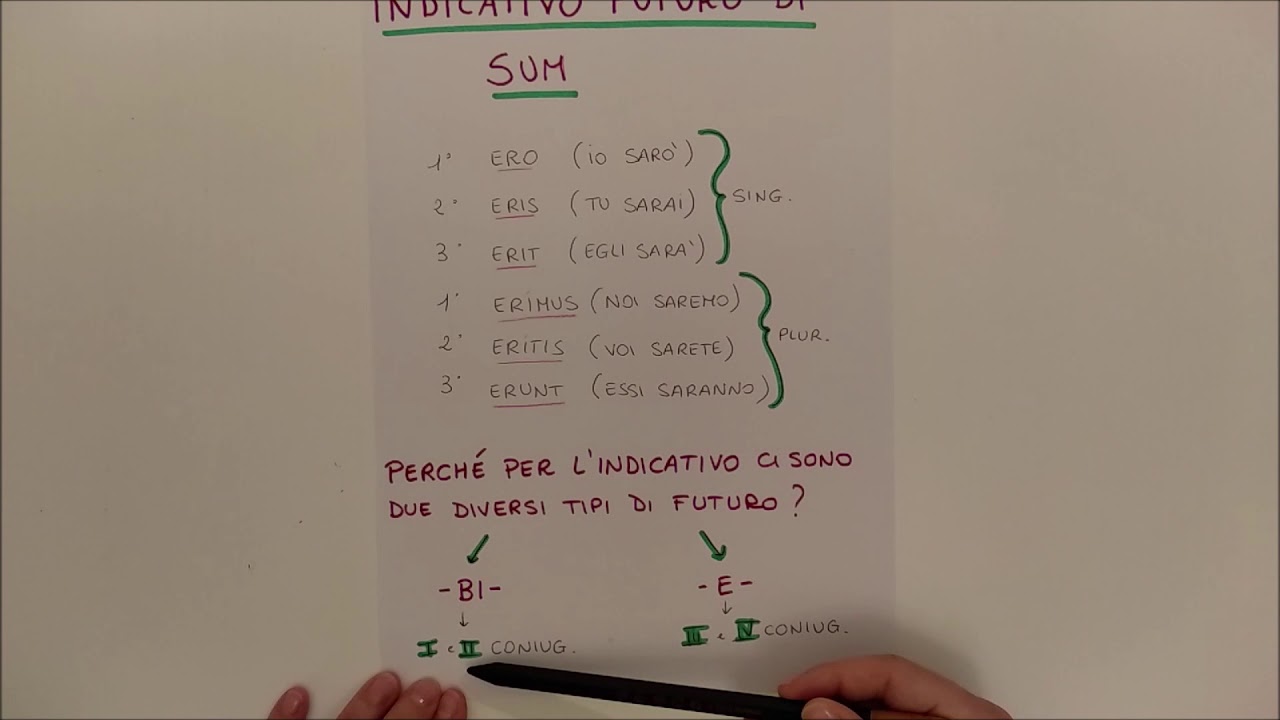 INDICATIVO FUTURO DI
SUM
1° ERO (IO SARÒ)
2° ERIS (TU SARAI)
3° ERIT (EGLI SARÀ)
SING.
1° ERIMUS (NOI SAREMO)
2° ERITIS (VOI SARETE)
3° ERUNT (ESSI SARANNO)
PLUR.
PERCHÉ PER L'INDICATIVO CI SONO
DUE DIVERSI TIPI DI FUTURO?
-BI- -E-
I e II CONIUG. III e IV CONIUG.